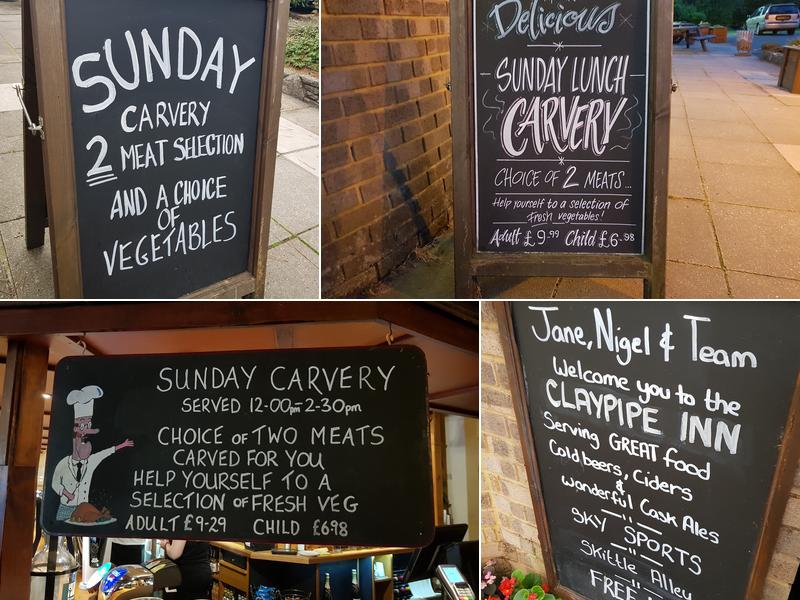 SUNDAY
CARVERY
2 MEAT SELECTION
AND A CHOICE
OF
VEGETABLES
Delicious
SUNDAY LUNCH
CARVERY
CHOICE OF 2 MEATS...
Help yourself to a selection of
Fresh vegetables!
Adult £9.99 Child £6.98
SUNDAY CARVERY
SERVED 12-00pm-2-30pm
CHOICE OF TWO MEATS
CARVED FOR YOU
HELP YOURSELF TO A
SELECTION OF FRESH VEG
ADULT £9-29 CHILD £698
Jane, Nigel & Team
Welcome you to the
CLAYPIPE INN
Serving GREAT food
Cold beers, Ciders
&
Wonderful Cask Ales
SKY SPORTS
Skittle Alley
FREE